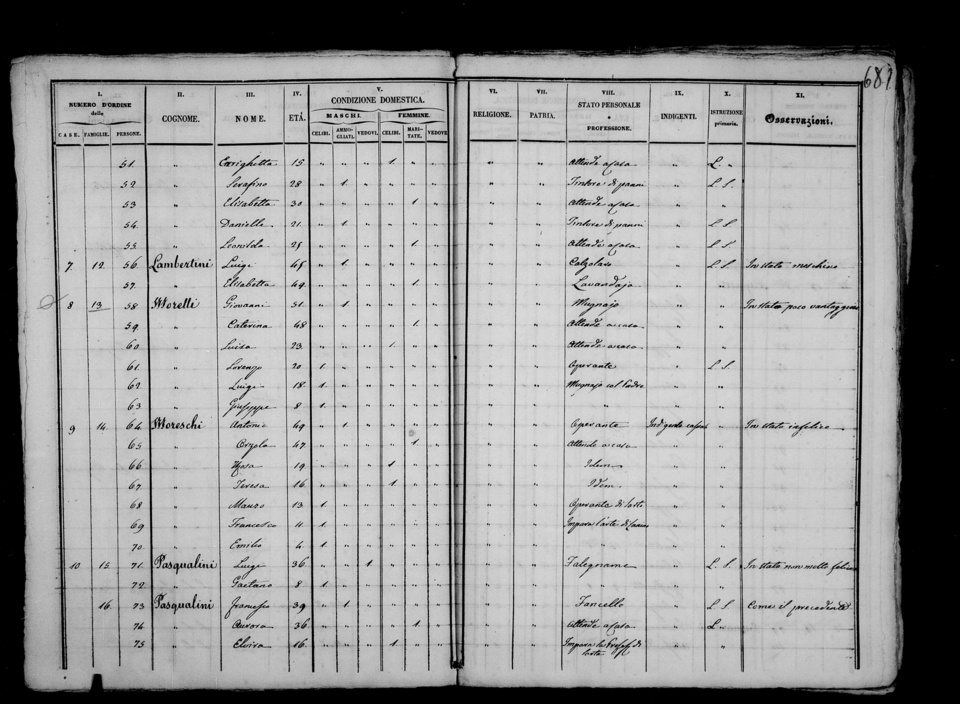 687
I. II. III. IV. V. VI. VII. VIII. IX. X. XI.
NUMERO D'ORDINE COGNOME. NOME. ETÁ. CONDIZIONE DOMESTICA. RELIGIONE. PATRIA. STATO PERSONALE INDIGENTI. ISTRUZIONE Osservazioni.
delle MASCHI. FEMMINE. e primaria.
CASE. FAMIGLIE. PERSONE. CELIBI. AMMOGLIATI. VEDOVI. CELIBI. MARITATE. VEDOVE PROFESSIONE.
51. " Enrighetta 15 " " " 1. " " " " Attende a casa " L. "
52 " Serafino 28 " 1. " " " " " " Tintore di panni " L S.
53 " Elisabetta 30 " " " " 1 " " " Attende a casa " "
54. " Danielle 21. " 1 " " " " " " Tintore di panni " L S
55. " Leonilda 25 " " " " 1. " " " Attende a casa " L S.
7. 12. 56. Lambertini Luigi 45 " 1. " " " " " " Calzolaio " L S In stato meschino
57. " Elisabetta 49 " " " " 1. " " " Lavandaja " "
8 13 58 Morelli Giovanni 51. " 1 " " " " " " Mugnajo " " In stato poco vantaggioso
59. " Caterina 48 " " " " 1. " " " Attende a casa " "
60. " Luisa 23. " " " 1. " " " " Attende a casa " "
61. " Lorenzo 20 1. " " " " " " " Operante " L S
62 " Luigi 18. 1. " " " " " " " Mugnajo col Padre " "
63 " Giuseppe 8 1. " " " " " " " " " "
9 14. 64 Moreschi Antonio 49 " 1 " " " " " " Operante Indigente " In stato infelice
65. " Orzola 47 " " " " 1. " " " Attende a casa " "
66 " Rosa 19 " " " 1 " " " " Idem " "
67. " Teresa 16 " " " 1. " " " " Idem. " "
68 " Mauro 13 1. " " " " " " " Operante di " "
69 " Francesco 11 1. " " " " " " " Impara l'arte di " "
70. " Emilio 4 1. " " " " " " " " " "
10 15. 71. Pasqualini Luigi 36. " " 1 " " " " " Falegname " L. S. In stato non molto felice
72. " Gaetano 8 1. " " " " " " " " " "
16. 73 Pasqualini Francesco 39 " 1 " " " " " " " L S Come il precedente
74 " Aurora 36 " " " " 1. " " " Attende a casa " L "
75 " Elvira 16. " " " 1. " " " " Impara la Profess. di " "